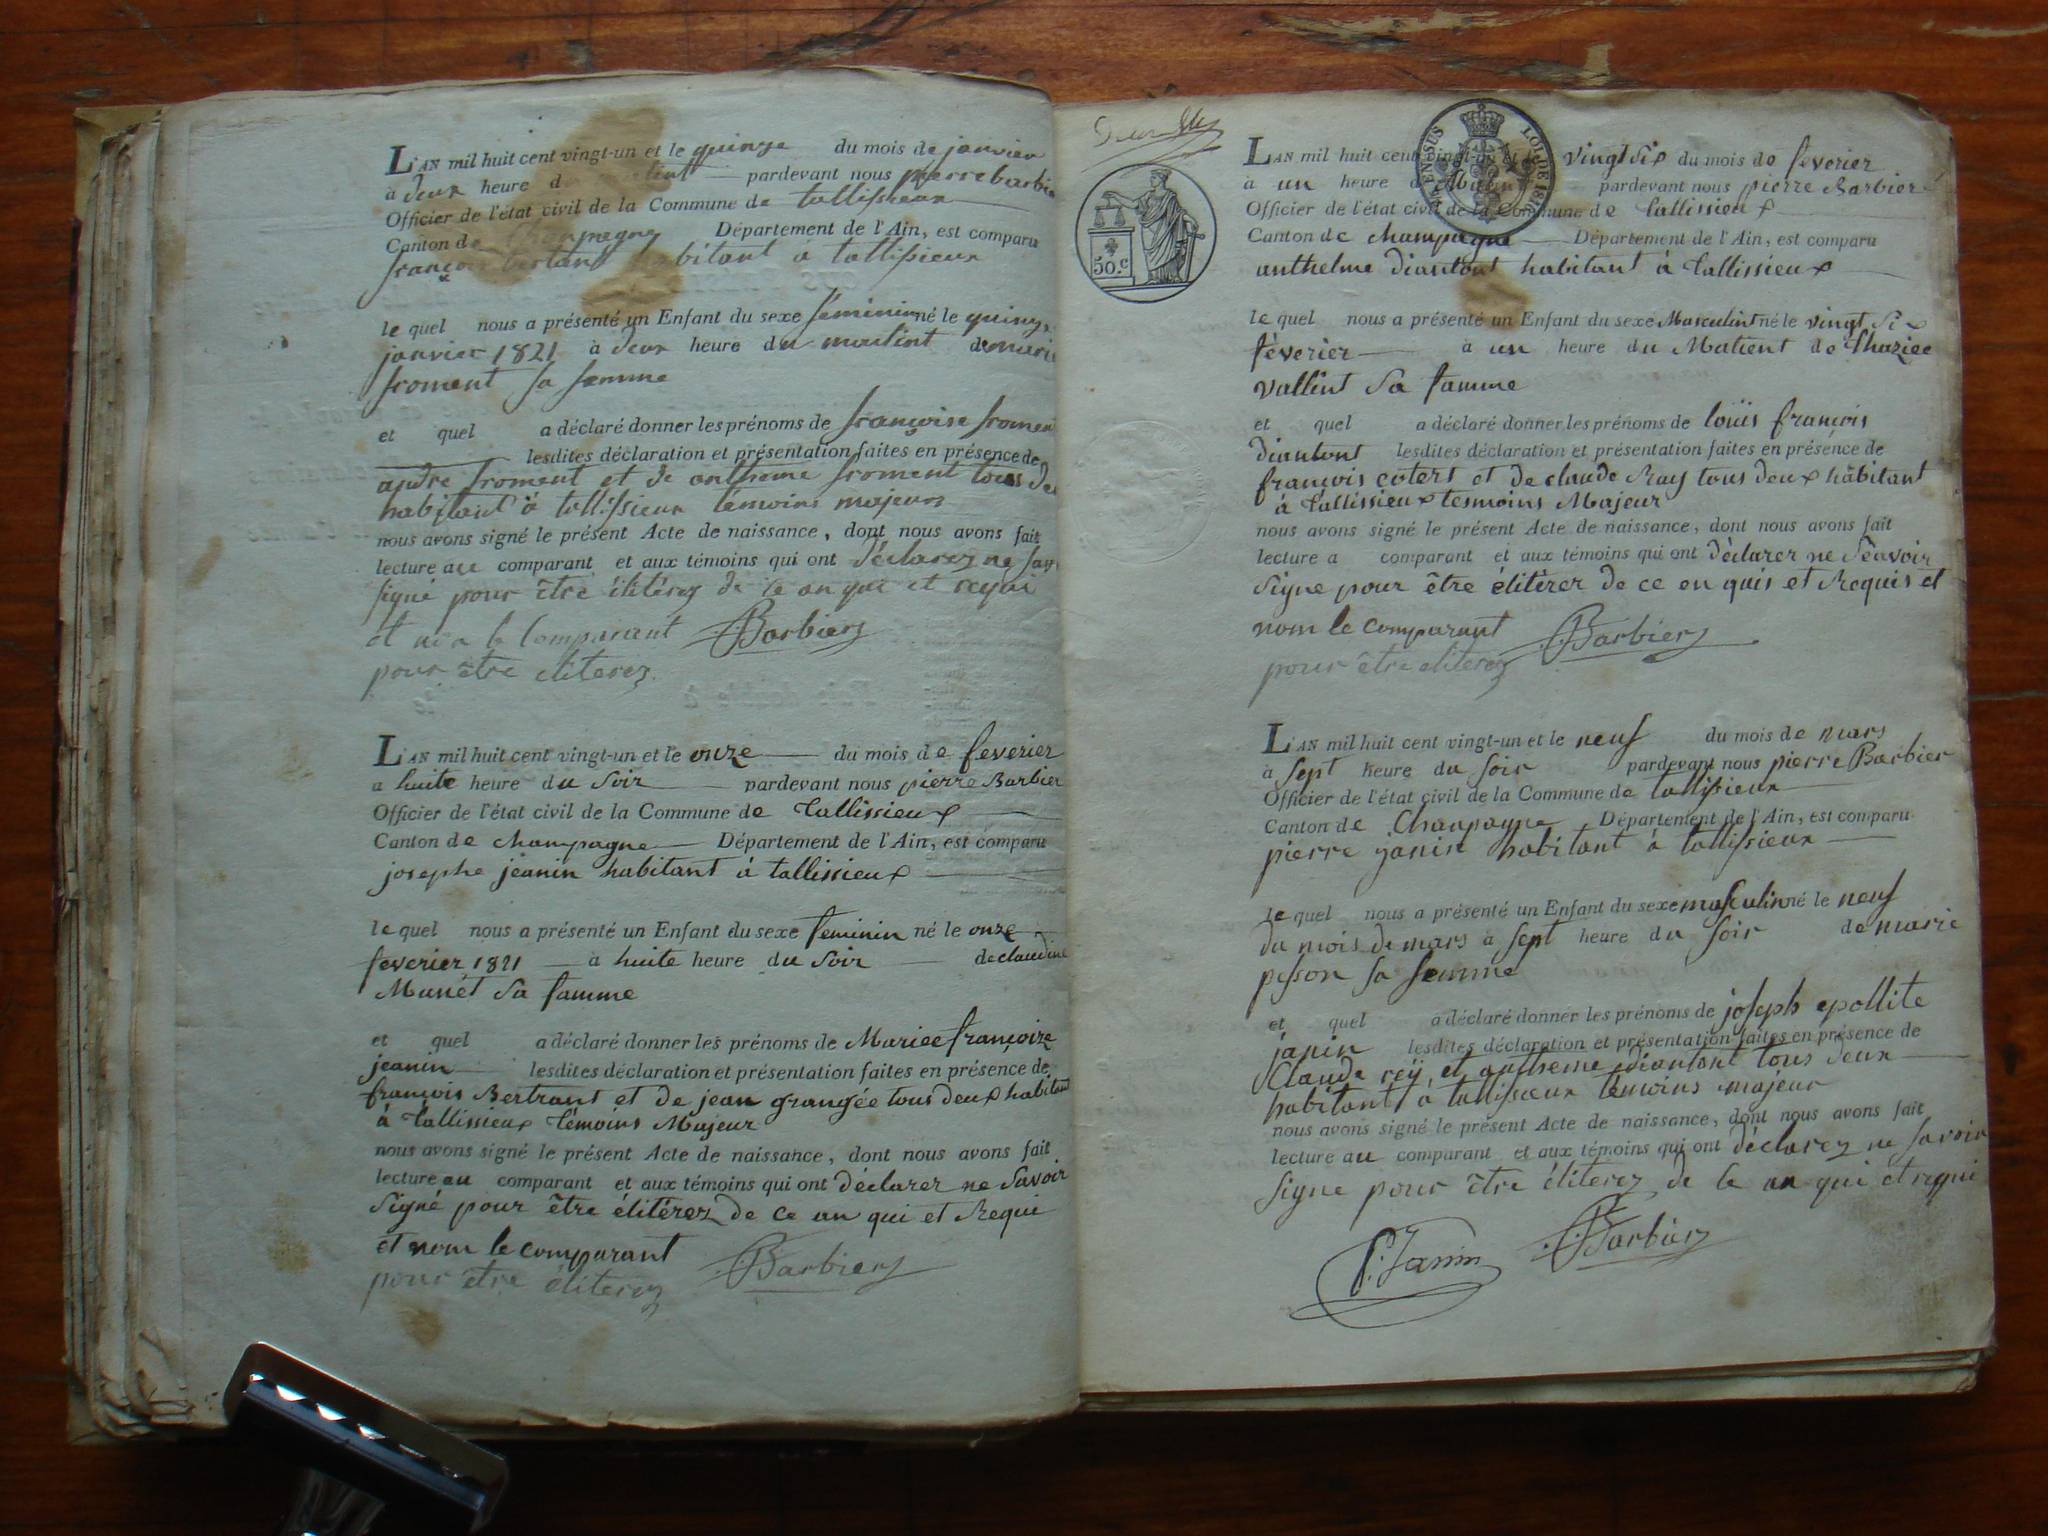 L'AN mil huit cent vingt-un et le quinze du mois de janvier
à deux heure du matint pardevant nous pierre barbier
Officier de l'état civil de la Commune de tallissieux
Canton de Champagne Département de l'Ain, est comparu
françois habitant à tallissieux
le quel nous a présenté un Enfant du sexe féminin né le quinze
janvier 1821 à deux heure du matint de marie
froment sa femme
et quel a déclaré donner les prénoms de françoise froment
lesdites déclaration et présentation faites en présence de
andre froment et de antheme froment tous de
habitant à tallissieux témoins majeurs
nous avons signé le présent Acte de naissance, dont nous avons fait
lecture au comparant et aux témoins qui ont déclarez ne sav
signé pour être élitérez de ce an qui et requi
et non le Comparant PBarbier
pour être éliterez
L'AN mil huit cent vingt-un et le onze du mois de feverier
a huite heure du soir pardevant nous pierre Barbier
Officier de l'état civil de la Commune de tallissieux
Canton de champagne Département de l'Ain, est comparu
josephe jeanin habitant à tallissieux
le quel nous a présenté un Enfant du sexe feminin né le onze
feverier 1821 à huite heure du soir de claudine
Manet sa famme
et quel a déclaré donner les prénoms de Mariee françoize
jeanin lesdites déclaration et présentation faites en présence de
françois Bertrant et de jean grangée tous deux habitant
à tallissieux témoins Majeur
nous avons signé le présent Acte de naissance, dont nous avons fait
lecture au comparant et aux témoins qui ont déclarer ne savoir
signé pour être élitérez de ce an qui et Requi
et nom le comparant PBarbier
pour être éliterez
50.c
EN SUS LOI DE 1816
L'AN mil huit cent vingt-un et le vingt six du mois de feverier
à un heure du Matin pardevant nous pierre Barbier
Officier de l'état civil de la Commune de tallissieux
Canton de champagne Département de l'Ain, est comparu
anthelme diantont habitant à tallissieux
le quel nous a présenté un Enfant du sexe Masculint né le vingt six
féverier à un heure du Matient de thaziee
vallint sa famme
et quel a déclaré donner les prénoms de louis françois
diantont lesdites déclaration et présentation faites en présence de
françois cotert et de claude Ray tous deux habitant
à tallissieux tesmoins Majeur
nous avons signé le présent Acte de naissance, dont nous avons fait
lecture a comparant et aux témoins qui ont déclarer ne sêavoir
signe pour être élitérer de ce en quis et Requis et
nom le comparant PBarbier
pour être eliterez
L'AN mil huit cent vingt-un et le neuf du mois de mars
à sept heure du soir pardevant nous pierre Barbier
Officier de l'état civil de la Commune de tallissieux
Canton de Chanpagne Département de l'Ain, est comparu
pierre janin habitant à tallissieux
le quel nous a présenté un Enfant du sexe masculin né le neuf
du mois de mars à sept heure du soir de marie
pisson sa femme
et quel a déclaré donner les prénoms de joseph epollite
janin lesdites déclaration et présentation faites en présence de
Claude rey, et antheme diantont tous deux
habitant à tallissieux témoins majeur
nous avons signé le présent Acte de naissance, dont nous avons fait
lecture au comparant et aux témoins qui ont déclarez ne savoir
signe pour être éliterez de ce an qui et requi
P. Janin PBarbier